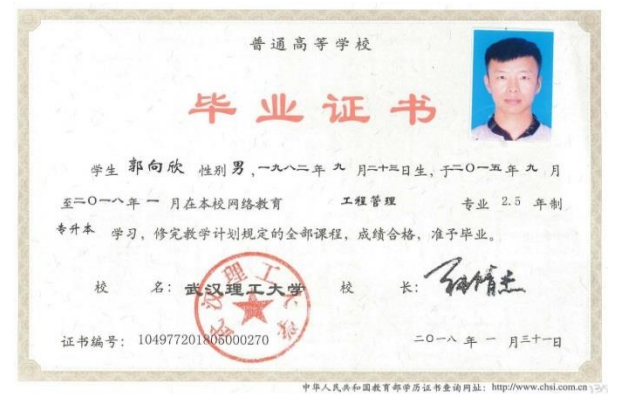 普通高等学校
毕业证书
学生 郭向欣 性别 男，一九八二年 九 月二十三日生，于二〇一五年 九 月
至二〇一八年 一 月在本校网络教育 工程管理 专业 2.5 年制
专升本 学习，修完教学计划规定的全部课程，成绩合格，准予毕业。
校 名：武汉理工大学 校 长：
武汉理工大学
证书编号：104977201805000270 二〇一八 年 一 月三十一日
中华人民共和国教育部学历证书查询网址：http://www.chsi.com.cn